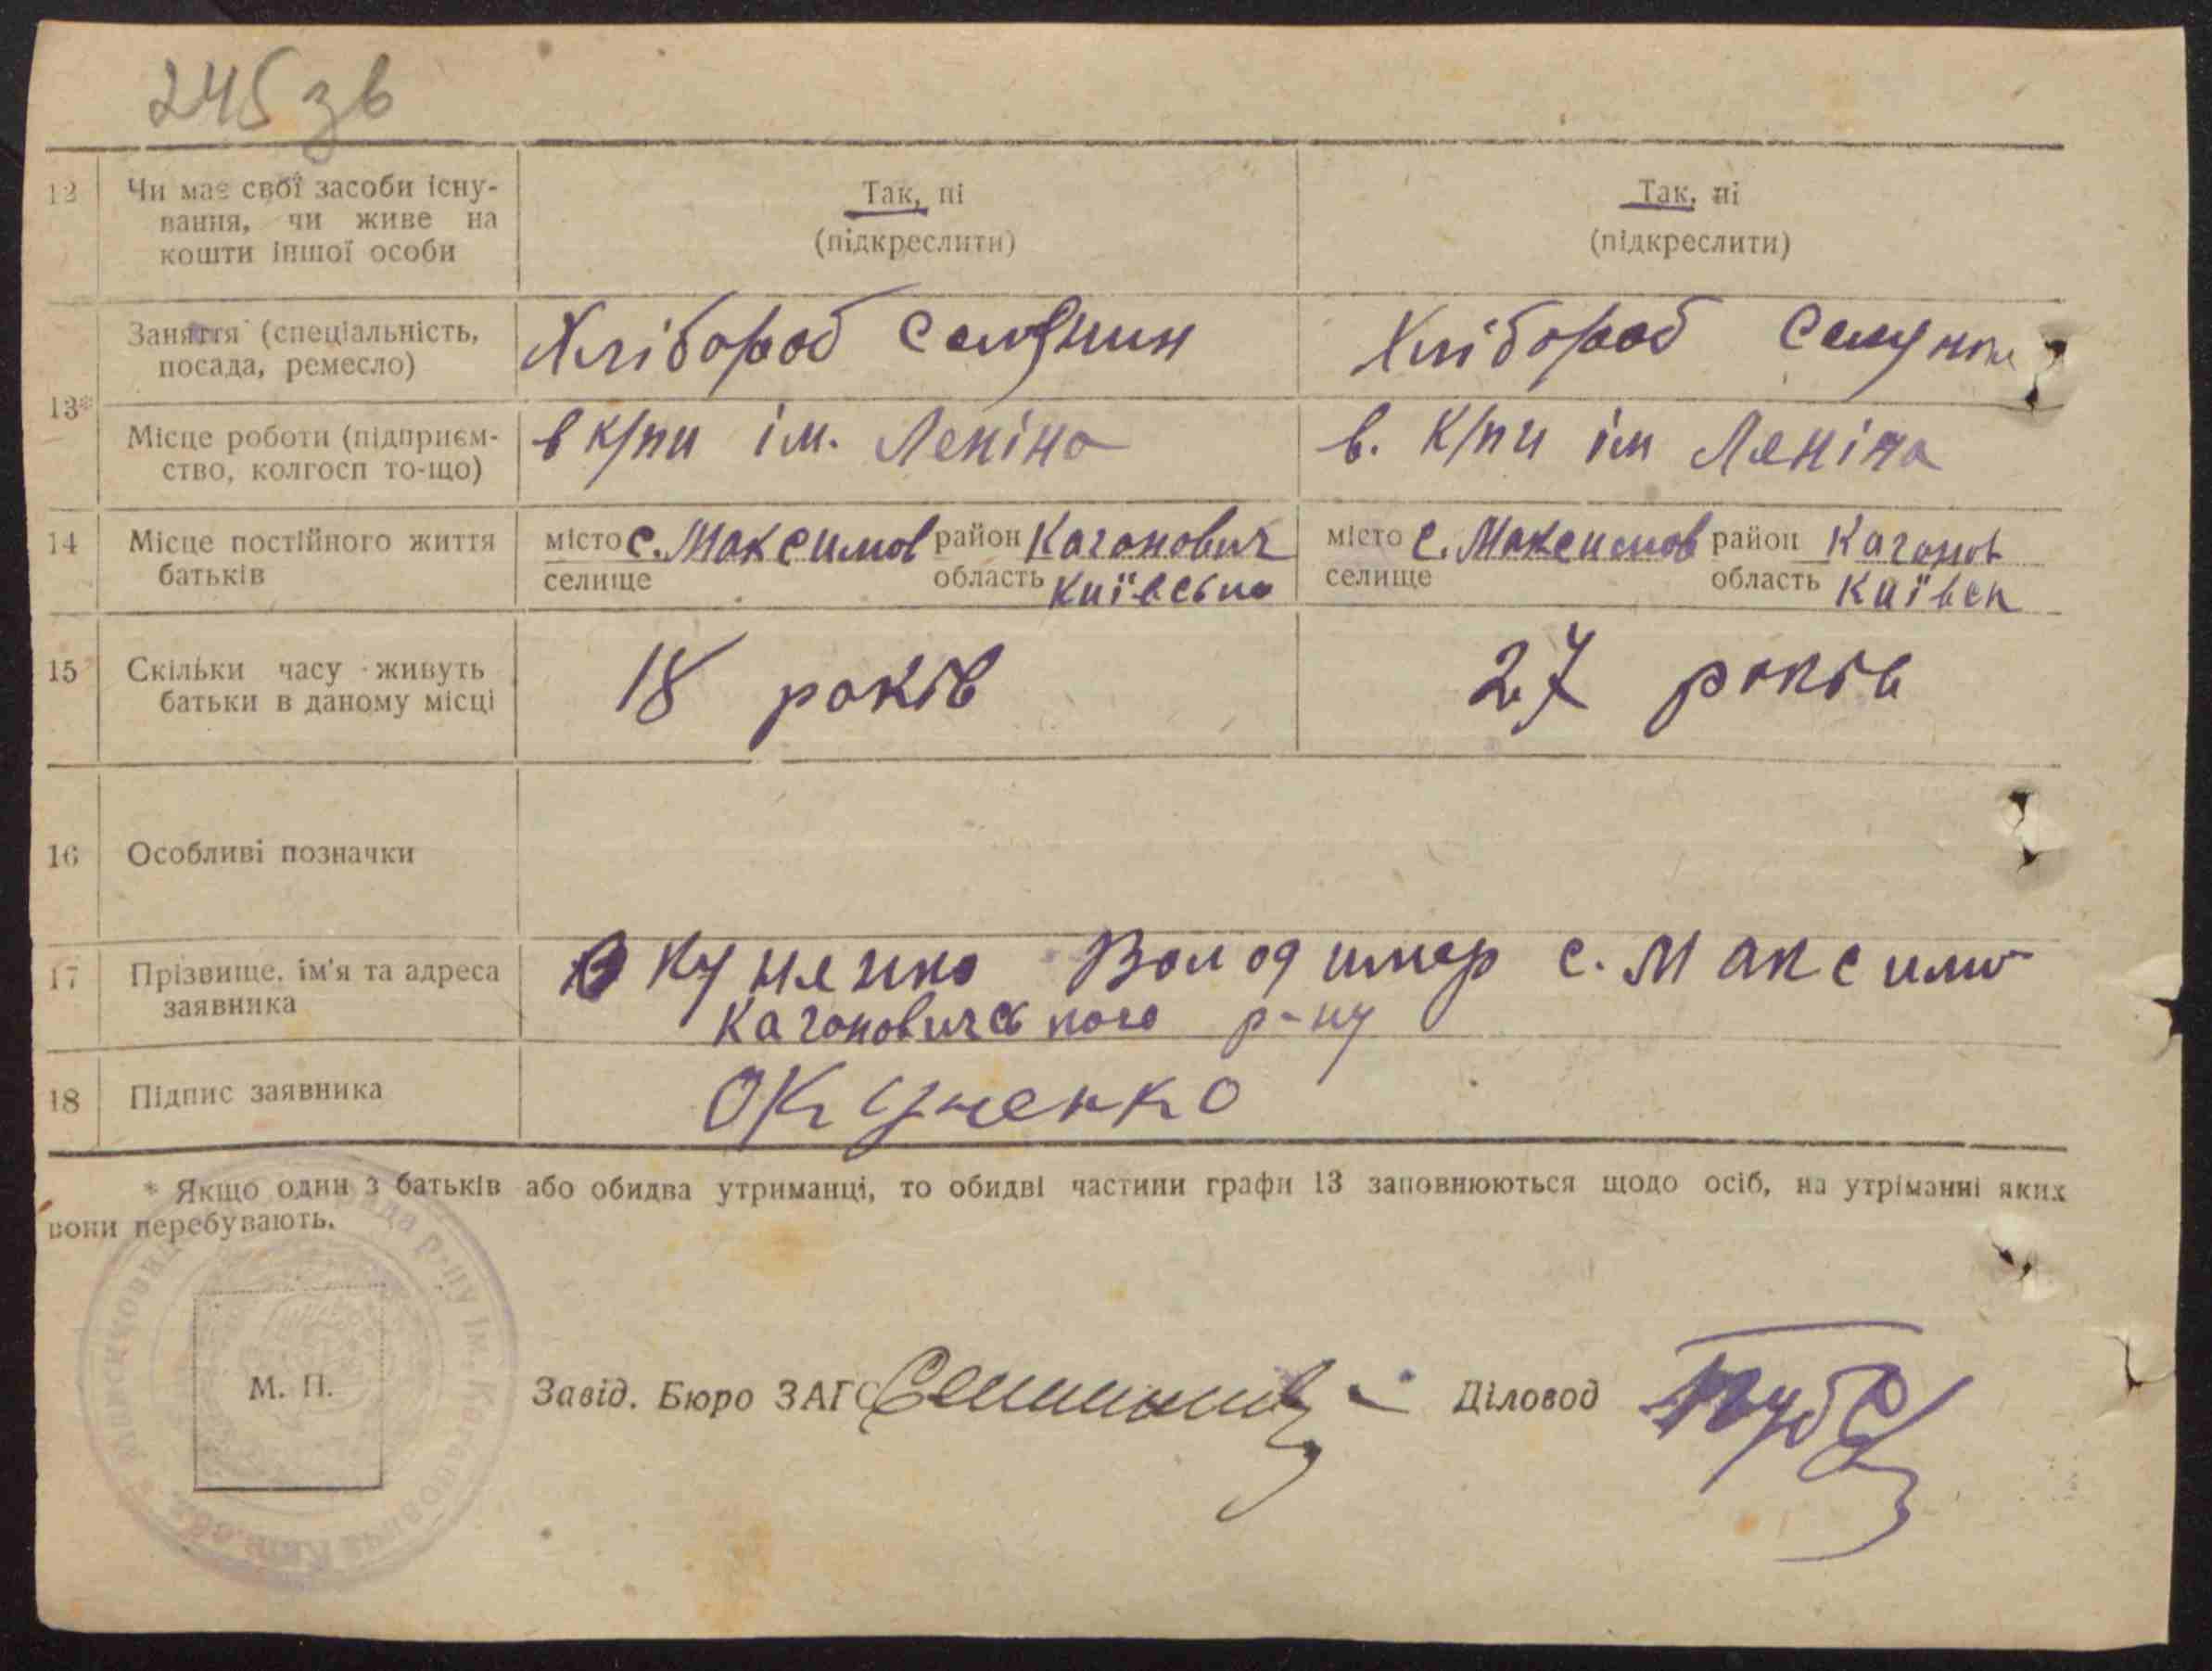 245 зв
12 Чи має свої засоби існу- Так, ні Так, ні
вання, чи живе на (підкреслити) (підкреслити)
кошти іншої особи
Заняття (спеціальність, Хлібороб Селянин Хлібороб
посада, ремесло)
13*
Місце роботи (підприєм- в к/пи ім. Леніна в. к/пи ім Леніна
ство, колгосп то-що)
14 Місце постійного життя місто с. Максимов район Каганович місто с. Максимов район Каганов
батьків селище область Київська селище область Київськ
15 Скільки часу живуть 18 років 27 років
батьки в даному місці
16 Особливі позначки
17 Прізвище, ім'я та адреса Окуненко Володимер с. Максимо
заявника Кагановичського р-ну
18 Підпис заявника Окуненко
* Якщо один з батьків або обидва утриманці, то обидві частини графи 13 заповнюються щодо осіб, на утріманні яких
вони перебувають.
рада р-ну ім. Кагановича Київ. обл.
М. П.
Завід. Бюро ЗАГС Діловод